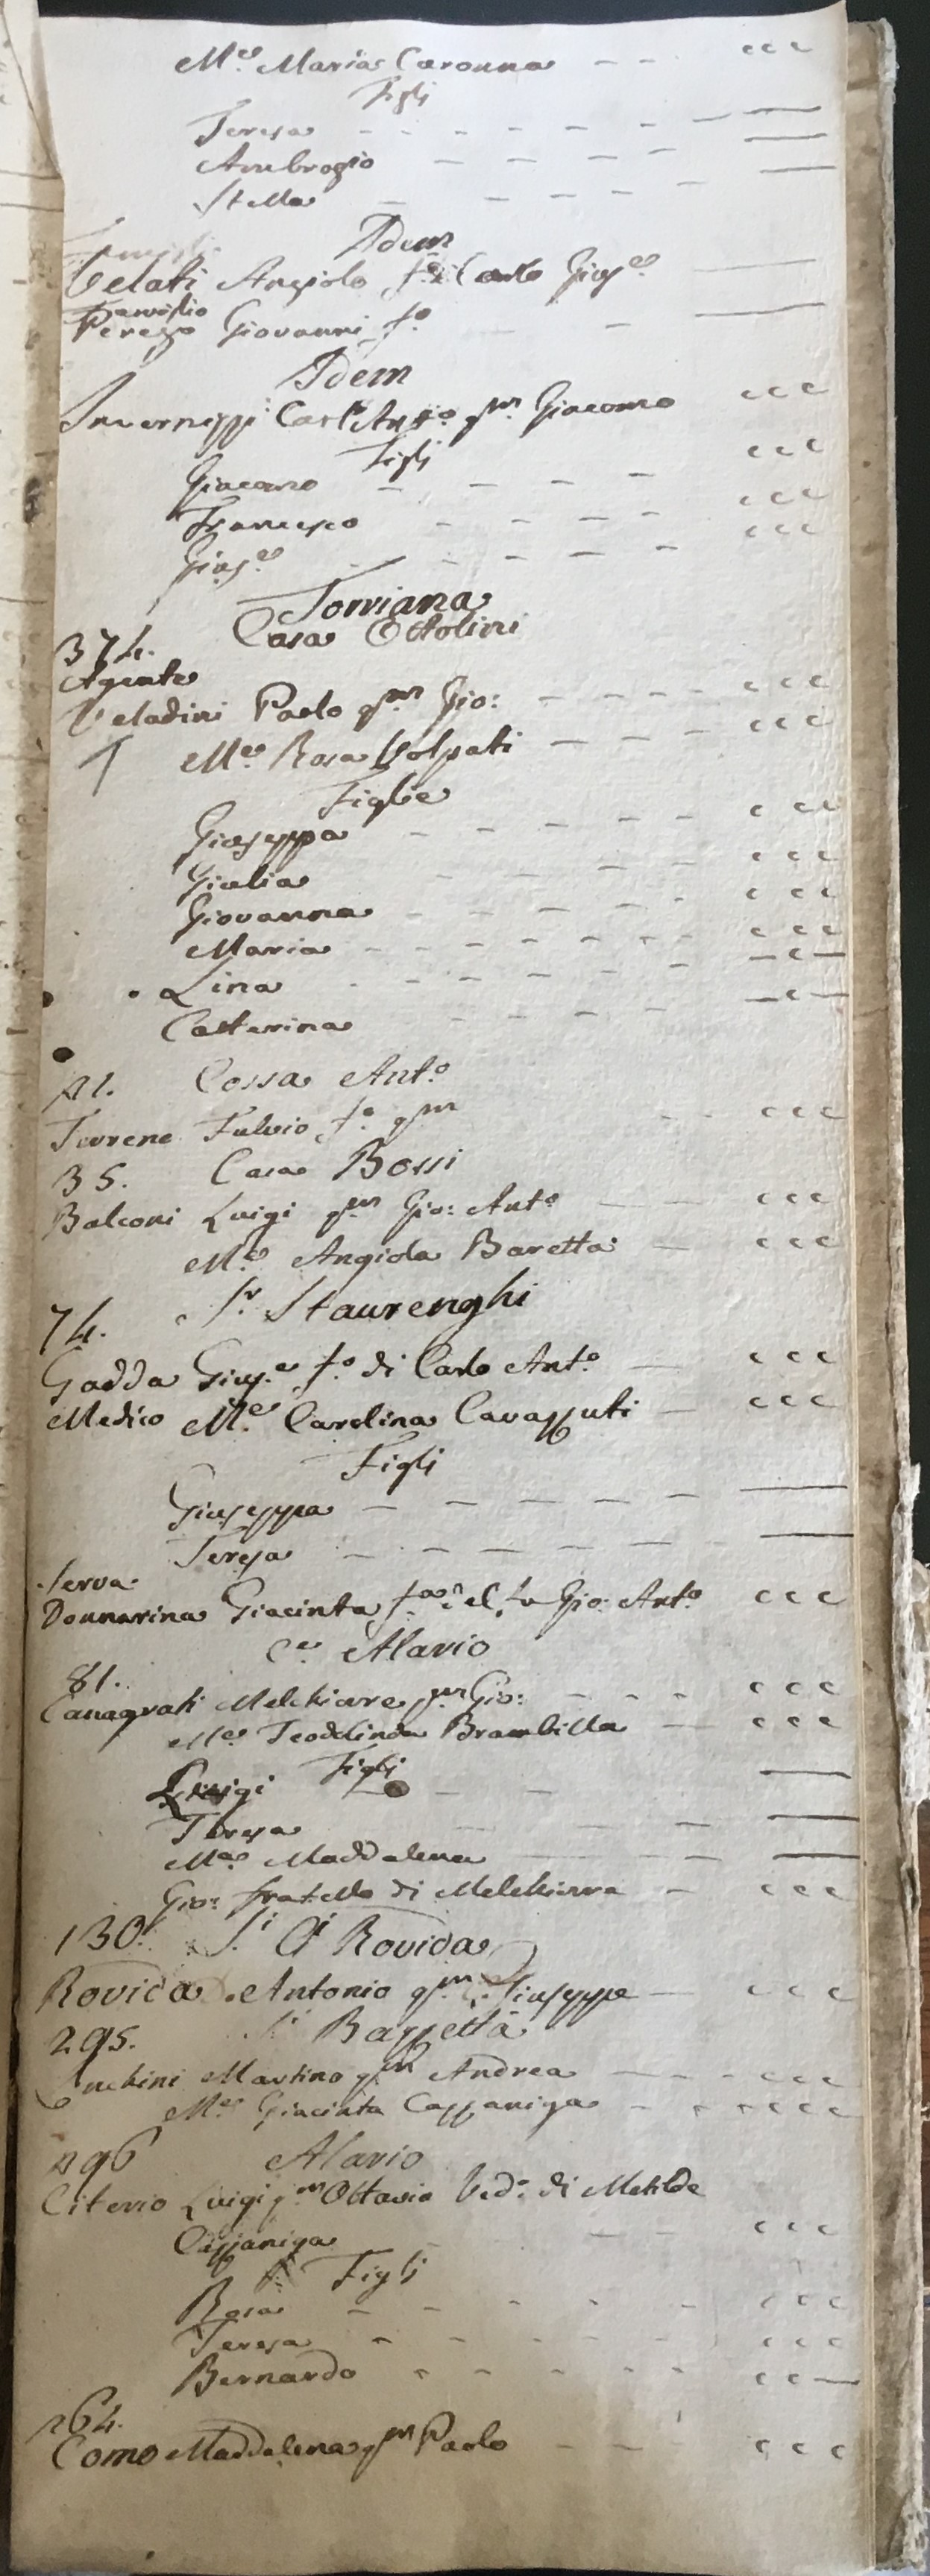 M.e Maria Caronna - - c c c
Figli
Teresa - - - - - - - —
Ambrogio - - - - —
Stella - - - - - —
Idem
Velati Angiolo f.o di Carlo Gius.e —
Famiglio
Perego Giovanni f.o - - —
Idem
Invernizzi Carl'Ant.o q.m Giacomo c c c
Figli
Giacomo - - - - c c c
Francesco - - - - c c c
Gius.e - - - - c c c
Torriana
Casa Ottolini
374.
Agente
Veladini Paolo q.m Gio: - - - - c c c
M.e Rosa Volpati - - - c c c
Figlie
Giuseppa - - - - - c c c
Giulia - - - - c c c
Giovanna - - - - - c c c
Maria - - - - - - - c c c
Lina - - - - - - — c —
Catterina - - - - — c —
Cossa Ant.o
Fulvio f.o q.m - - c c c
35. Casa Bossi
Balconi Luigi q.m Gio: Ant.o - - c c c
M.e Angiola Baretta - c c c
74. S.r Staurenghi
Gadda Gius.e f.o di Carlo Ant.o - c c c
Medico M.e Carolina Cavazzuti - c c c
Figli
Giuseppa - - - - - —
Teresa - - - - - - —
Serva
Donnarina Giacinta f.a del fu Gio: Ant.o c c c
C.a Alario
81.
Canagrati Melchiore q.m Gio: - - - c c c
M.e Teodolinda Brambilla - c c c
Figli
Luigi - - - —
Teresa - - - - —
M.a Maddalena - - - - —
Gio: fratello di Melchiorre - c c c
130. S.i Rovida
Rovida Antonio q.m Giuseppe - c c c
295. Bazzetta
Martino q.m Andrea - - - c c c
M.e Giacinta Cazzaniga - - - c c c
296 Alario
Citerio Luigi q.m Ottavio Ved.o di Metilde
Cazzaniga - - c c c
Figli
Rosa - - - - - c c c
Teresa - - - - - c c c
Bernardo - - - - - c c —
264.
Como Maddalena q.m Paolo - - - c c c